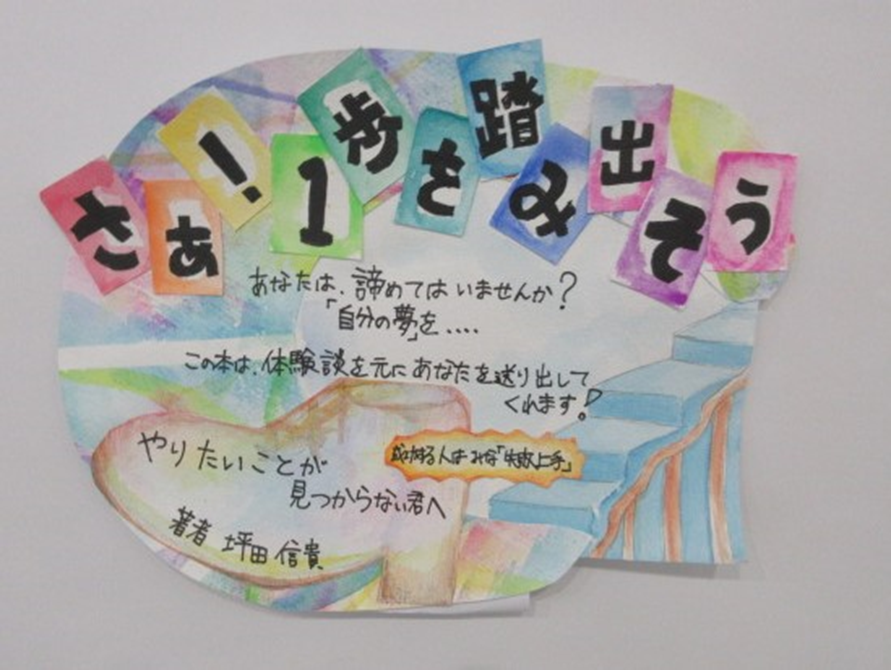 さぁ!1歩を踏み出そう
あなたは、諦めてはいませんか?
「自分の夢」を....
この本は、体験談を元にあなたを送り出して
くれます!
成功する人はみな「失敗上手」
やりたいことが
見つからない君へ
著者 坪田信貴